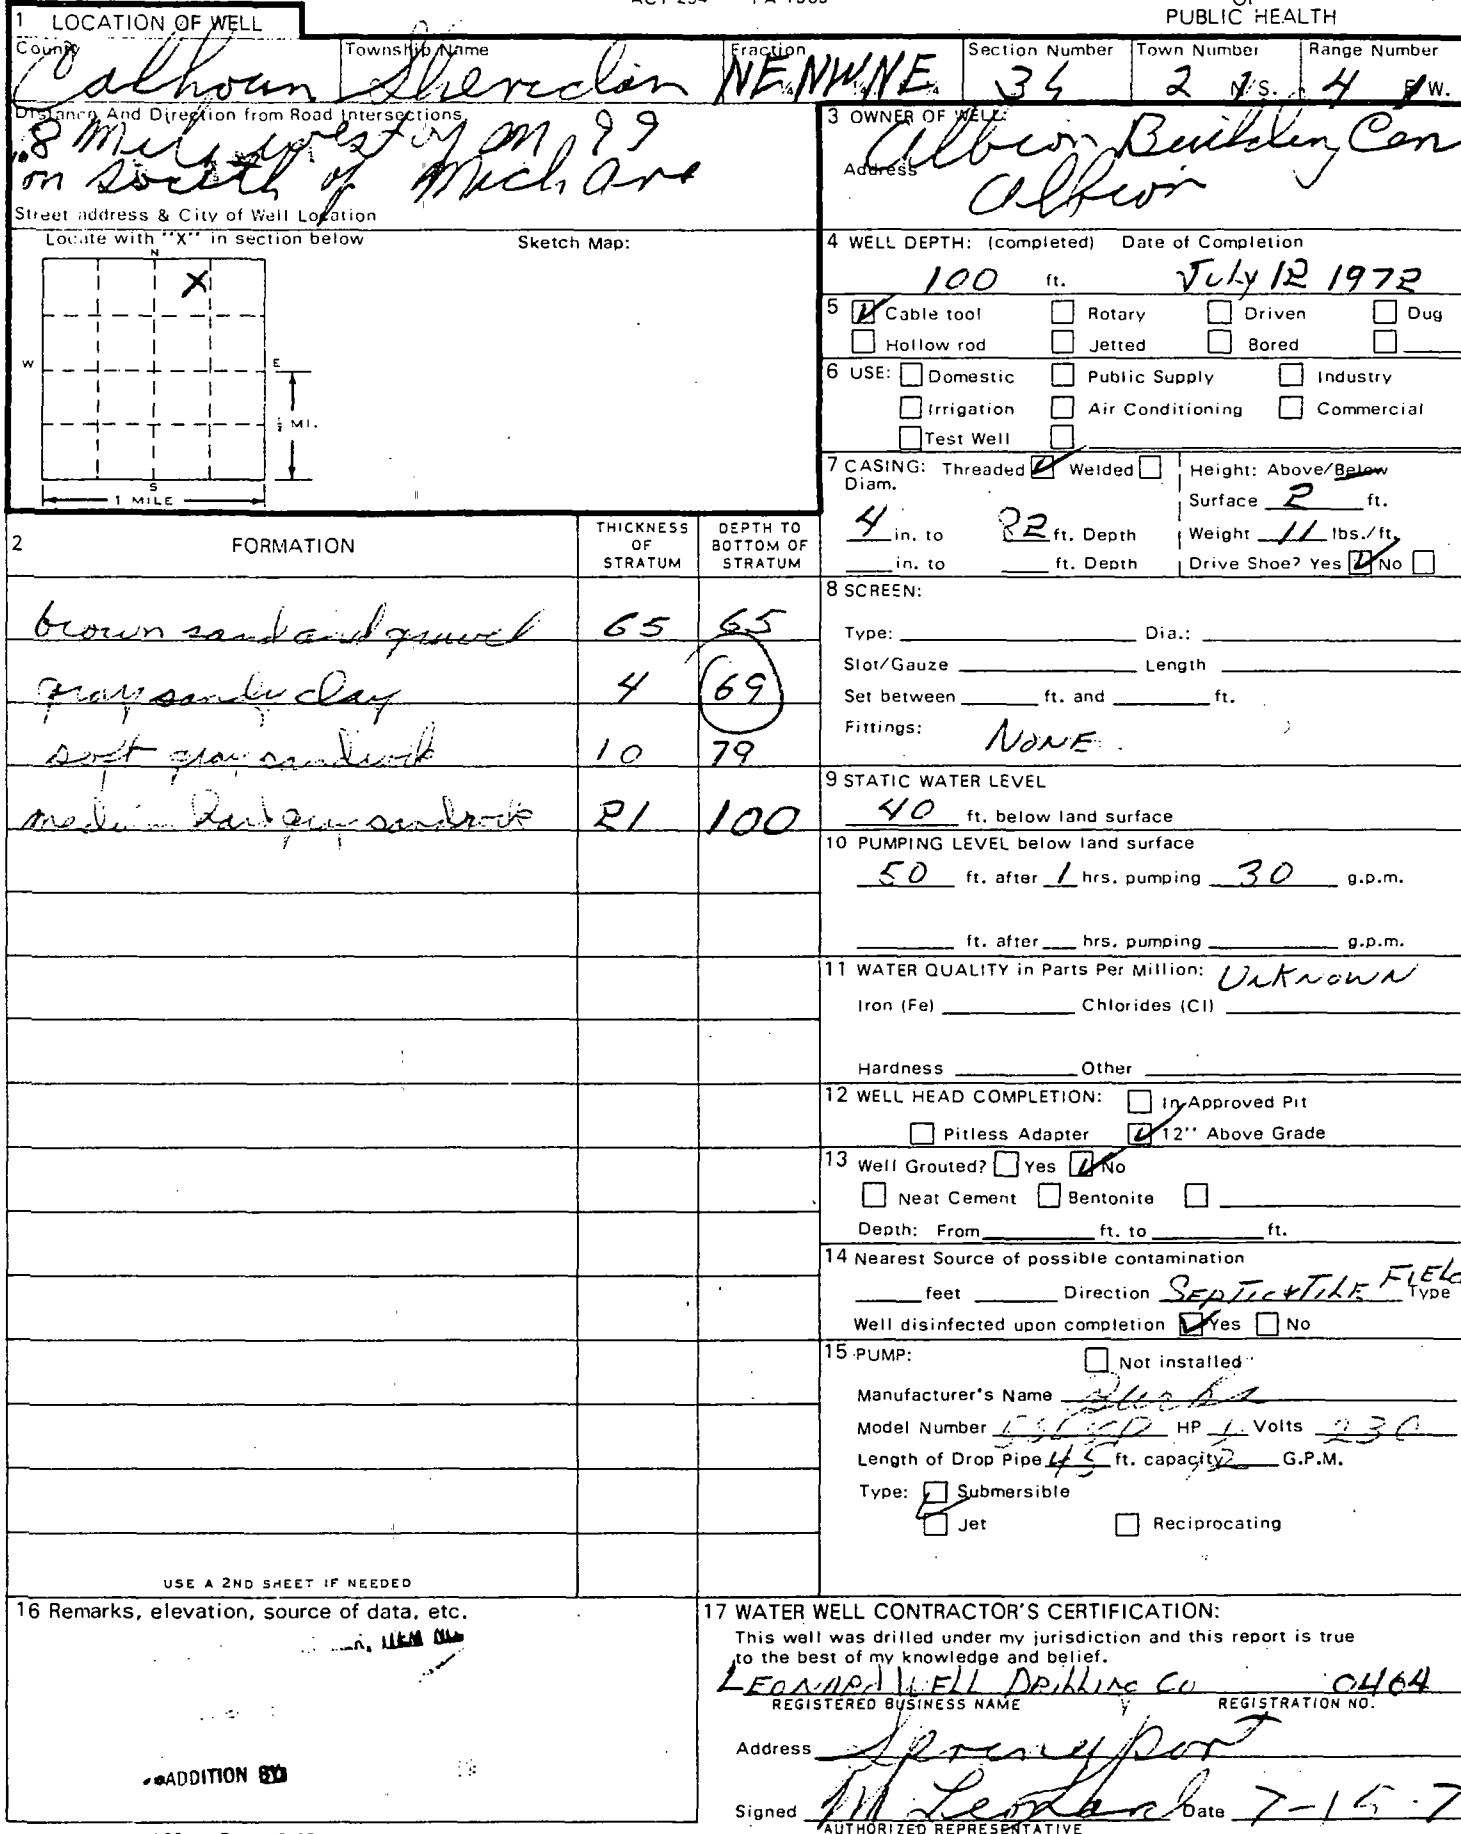 PUBLIC HEALTH
1 LOCATION OF WELL
County Township Name Fraction Section Number Town Number Range Number
Calhoun Sheridan NE NW NE 34 2 N/S. 4 E/W.
Distance And Direction from Road Intersections
.8 Mile west of M 99
on South of Mich Ave
Street address & City of Well Location
Locate with "X" in section below Sketch Map:
N
X
W E
½ MI.
S
1 MILE
3 OWNER OF WELL:
Albion Building Cen
Address
Albion
4 WELL DEPTH: (completed) Date of Completion
100 ft. July 12 1972
5 Cable tool Rotary Driven Dug
Hollow rod Jetted Bored
6 USE: Domestic Public Supply Industry
Irrigation Air Conditioning Commercial
Test Well
7 CASING: Threaded Welded Height: Above/Below
Diam.
Surface 2 ft.
4 in. to 82 ft. Depth Weight 11 lbs./ft.
in. to ft. Depth Drive Shoe? Yes No
2 FORMATION THICKNESS OF STRATUM DEPTH TO BOTTOM OF STRATUM
brown sand and gravel 65 65
gray sandy clay 4 69
soft gray sandrock 10 79
medium hard gray sandrock 21 100
8 SCREEN:
Type: Dia.:
Slot/Gauze Length
Set between ft. and ft.
Fittings: NONE
9 STATIC WATER LEVEL
40 ft. below land surface
10 PUMPING LEVEL below land surface
50 ft. after 1 hrs. pumping 30 g.p.m.
ft. after hrs. pumping g.p.m.
11 WATER QUALITY in Parts Per Million: UNKNOWN
Iron (Fe) Chlorides (Cl)
Hardness Other
12 WELL HEAD COMPLETION: In Approved Pit
Pitless Adapter 12" Above Grade
13 Well Grouted? Yes No
Neat Cement Bentonite
Depth: From ft. to ft.
14 Nearest Source of possible contamination
feet Direction SEPTIC & TILE FIELD Type
Well disinfected upon completion Yes No
15 PUMP: Not installed
Manufacturer's Name Burks
Model Number HP 1 Volts 230
Length of Drop Pipe 45 ft. capacity G.P.M.
Type: Submersible
Jet Reciprocating
USE A 2ND SHEET IF NEEDED
16 Remarks, elevation, source of data, etc.
ADDITION BY
17 WATER WELL CONTRACTOR'S CERTIFICATION:
This well was drilled under my jurisdiction and this report is true
to the best of my knowledge and belief.
LEONARD WELL DRILLING CO 0464
REGISTERED BUSINESS NAME REGISTRATION NO.
Address Springport
Signed M Leonard Date 7-15-7
AUTHORIZED REPRESENTATIVE